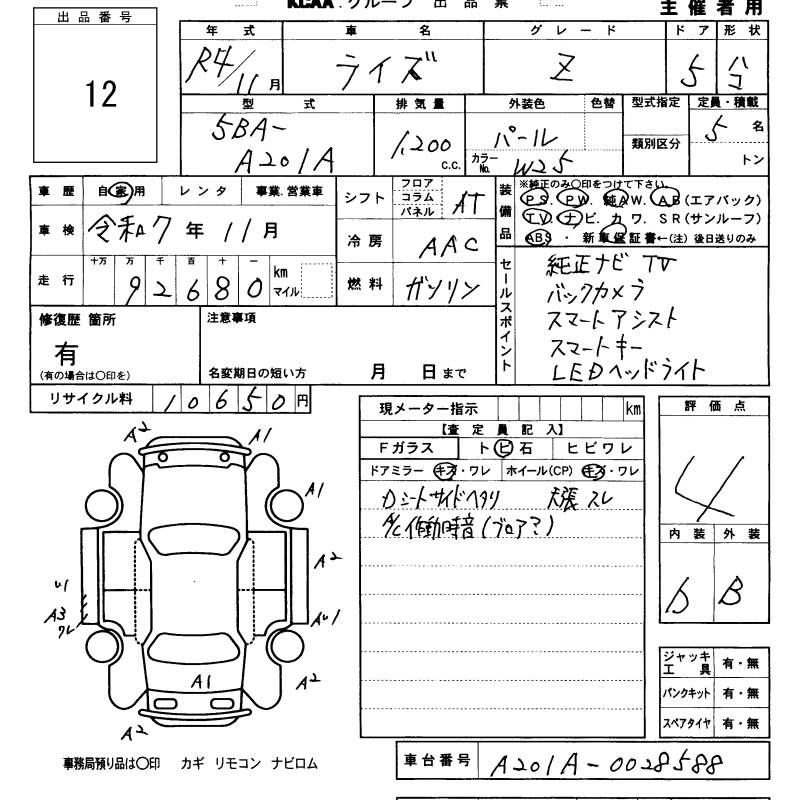 KCAA．グループ 出品票
主催者用
出品番号
12
年式 車名 グレード ドア 形状
R4/11月 ライズ Z 5 ハコ
型式 排気量 外装色 色替 型式指定 定員・積載
5BA-
A201A
1,200 c.c.
パール
カラーNo. W25
類別区分
5 名
トン
車歴 自家用 レンタ 事業.営業車
車検 令和7年11月
走行 十万 万 千 百 十 一 km マイル
92680
シフト フロア コラム パネル AT
冷房 AAC
燃料 ガソリン
装備品
※純正のみ○印をつけて下さい。
PS. PW. 純AW. AB(エアバック)
TV. ナビ. カワ. SR(サンルーフ)
ABS ・ 新車保証書←(注) 後日送りのみ
セールスポイント
純正ナビ TV
バックカメラ
スマートアシスト
スマートキー
LEDヘッドライト
修復歴 箇所
有
(有の場合は○印を)
注意事項
名変期日の短い方 月 日まで
リサイクル料 10650円
現メーター指示 km
【査定員記入】
Fガラス ト ビ 石 ヒビワレ
ドアミラー キズ・ワレ ホイール(CP) キズ・ワレ
Dシートサイドヘタリ 天張スレ
A/C作動時音(ブロア?)
評価点
4
内装 外装
D B
ジャッキ工具 有・無
パンクキット 有・無
スペアタイヤ 有・無
A2 A1
A1
A2
U1
A3
ワレ
AU1
A1 A2
A2
事務局預り品は○印 カギ リモコン ナビロム
車台番号 A201A-0028588